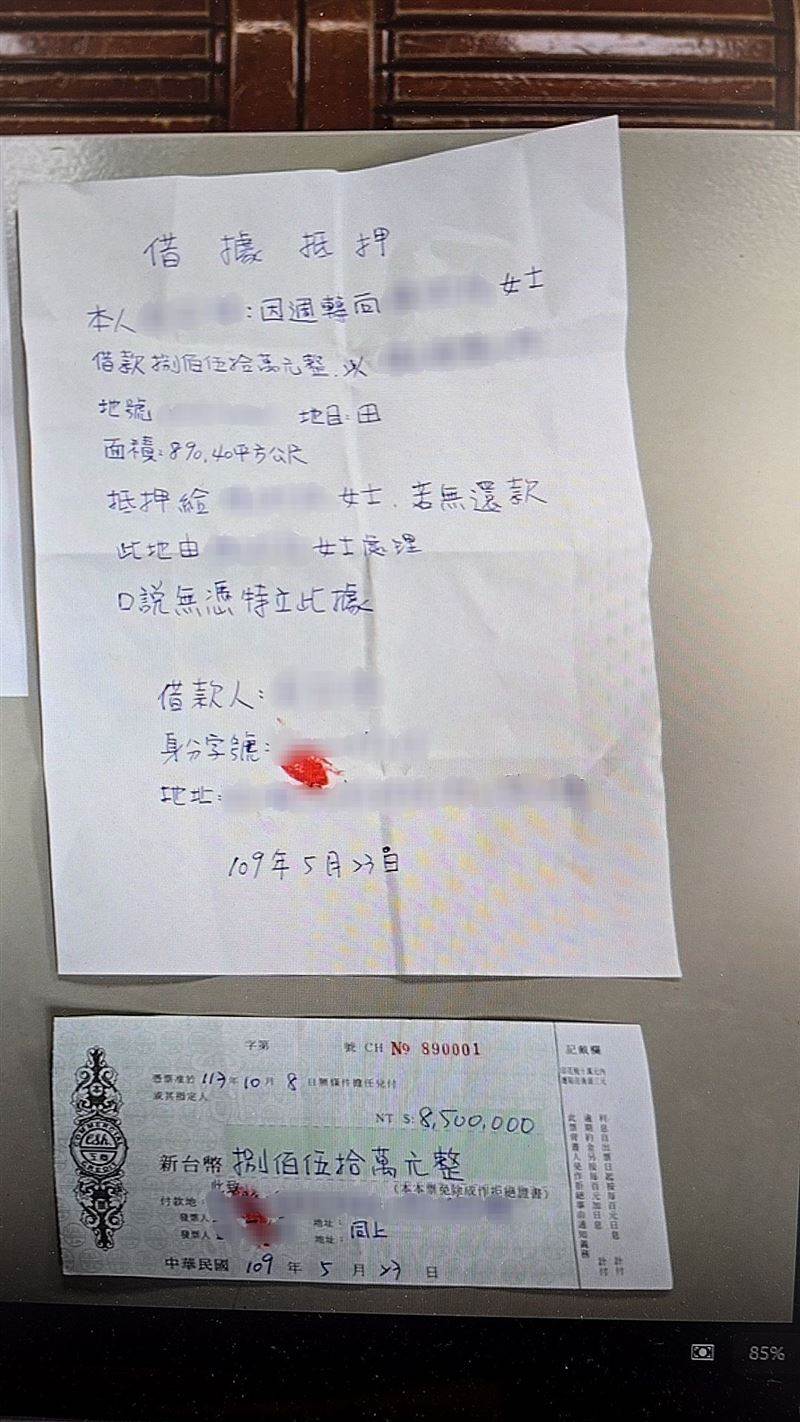 借據抵押
本人 :因週轉向 女士
借款捌佰伍拾萬元整.以
地號 地目:田
面積:890.40平方公尺
抵押給 女士.若無還款
此地由 女士處理
口說無憑特立此據
借款人:
身分字號:
地址:
109年5月23日
字第 號 CH № 890001
憑票准於113年10月8日無條件擔任兌付
或其指定人
NT $: 8,500,000
新台幣 捌佰伍拾萬元整
此致
(本本票免除成作拒絕證書)
付款地:
發票人 地址: 同上
發票人 地址:
中華民國 109 年 5 月 23 日
記載欄
85%